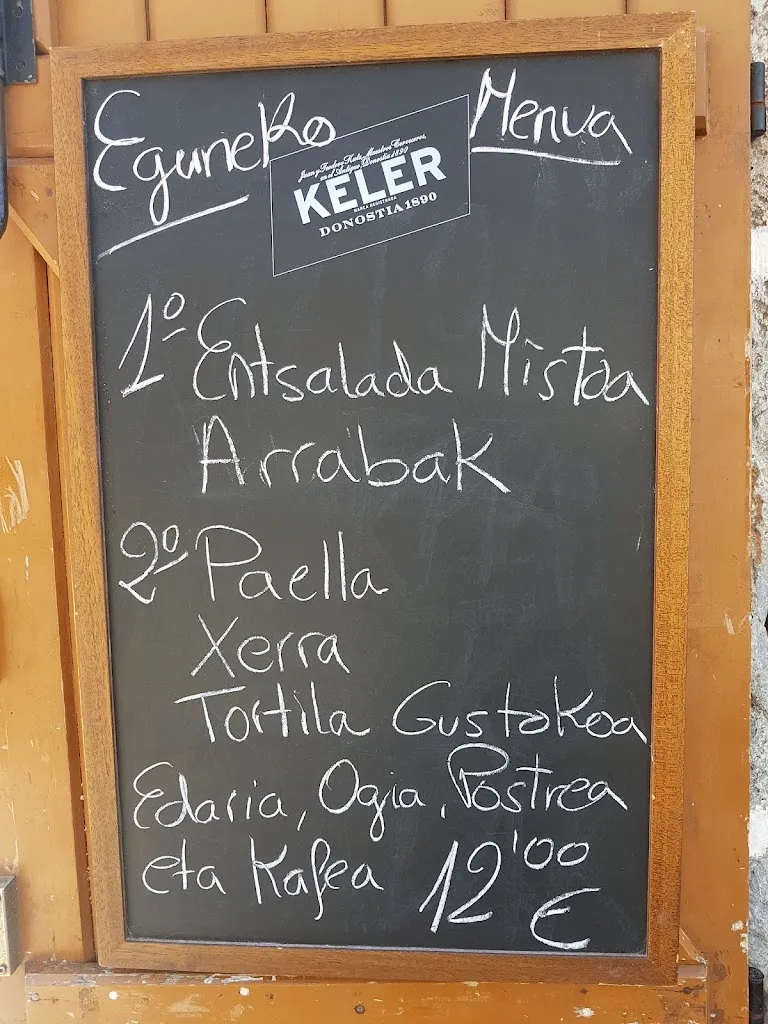 Eguneko Menua
Juan y Teodoro Kutz, Maestros Cerveceros,
en el Antiguo, Donostia 1890
KELER
MARCA REGISTRADA
DONOSTIA 1890
1º Entsalada Mistoa
Arrabak
2º Paella
Xerra
Tortila Gustokoa
Edaria, Ogia, Postrea
eta Kafea 12'00
€